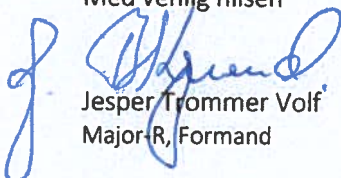 Med venlig hilsen
Jesper Trommer Volf
Major-R, Formand